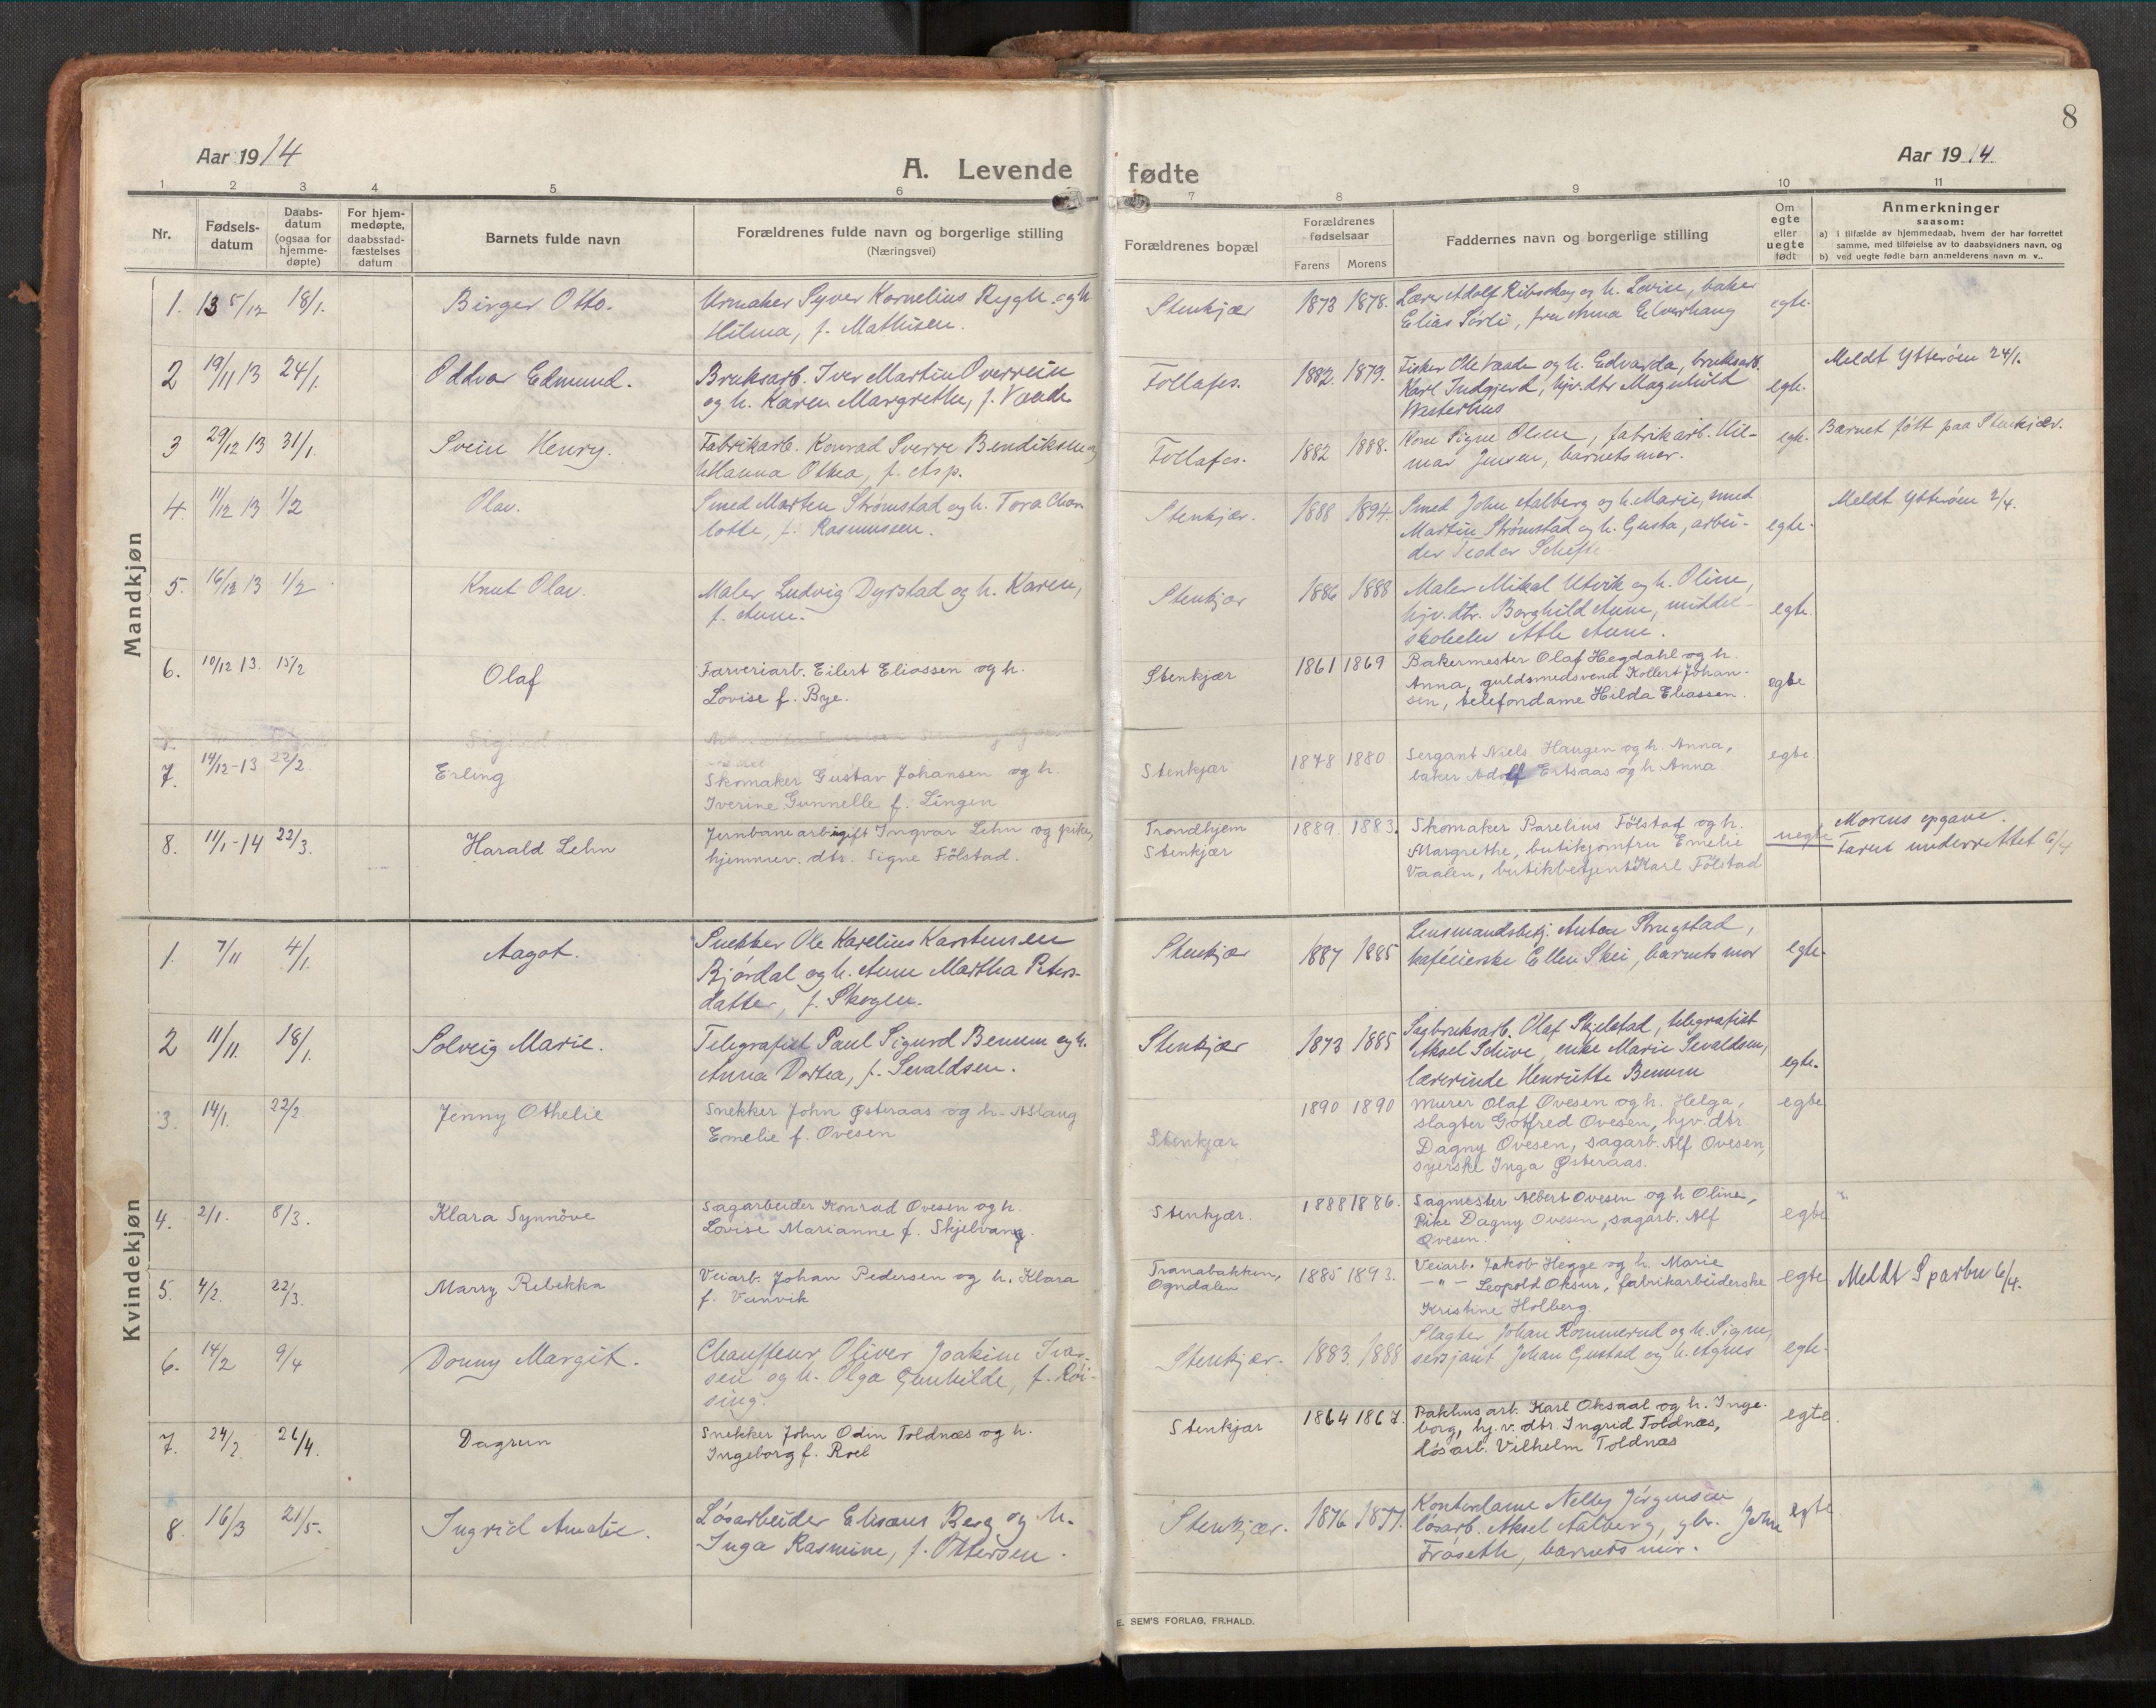 8
Aar 1914
A. Levende fødte
Aar 1914.
1 2 3 4 5 6 7 8 9 10 11
Nr.
Fødsels-
datum
Daabs-
datum
(ogsaa for
hjemme-
døpte)
For hjem-
medøpte,
daabsstad-
fæstelses
datum
Barnets fulde navn
Forældrenes fulde navn og borgerlige stilling
(Næringsvei)
Forældrenes bopæl
Forældrenes
fødselsaar
Farens Morens
Faddernes navn og borgerlige stilling
Om
egte
eller
uegte
født
Anmerkninger
saasom:
a) i tilfælde av hjemmedaab, hvem der har forrettet
samme, med tilføielse av to daabsvidners navn, og
b) ved uegte fødte barn anmelderens navn m. v..
Mandkjøn
1. 13 5/12 18/1. Birger Otto.
Urmaker Syver Kornelius Rygh og h.
Hilma, f. Mathisen.
Stenkjær 1873 1878.
Lærer Adolf Ribsskog og h. Lovise, baker
Elias Sørli, fru Anna Elverhaug
egte.
2 19/11 13 24/1. Oddvar Edmund.
Bruksarb. Iver Martin Overrein
og h. Karen Margrethe, f. Vaade
Follafos. 1882. 1879.
Fisker Ole Vaade og h. Edvarda, bruksarb.
Karl Indgjerd, hjv. dtr Magnhild
Westerhus
egte.
Meldt Ytterøen 24/1.
3 29/12 13 31/1. Svein Henry.
Fabrikarb. Konrad Sverre Bendiksen og
h. Hanna Othea, f. Asp.
Follafos. 1882 1888.
Kone Signe Olsen, fabrikarb. Hil-
mar Jensen, barnets mor.
egte.
Barnet født paa Stenkjær.
4. 11/12 13 1/2 Olav.
Smed Morten Strømstad og h. Tora Char
lotte, f. Rasmussen.
Stenkjær. 1888 1894.
Smed John Aalberg og h. Marie, smed
Martin Strømstad og h. Gusta, arbei-
der Teodor
egte.
Meldt Ytterøen 2/4.
5. 16/12 13 1/2 Knut Olav.
Maler Ludvig Dyrstad og h. Karen,
f. Aune.
Stenkjær 1886 1888
Maler Mikal Utvik og h. Oline,
hjv. dtr. Borghild Aune, middel-
skoleelev Atle Aune.
egte.
6. 10/12 13. 15/2 Olaf
Farveriarb. Eilert Eliassen og h.
Lovise f. Bye.
Stenkjær 1861 1869
Bakermester Olaf Hegdahl og h.
Anna, guldsmedsvend Kollert Johan-
sen, telefondame Hilda Eliassen.
egte
7. 14/12-13 22/2. Erling
Skomaker Gustav Johansen og h.
Iverine Gunnelle f. Lingen
Stenkjær 1848 1880
Sergant Niels Haugen og h. Anna,
baker Adolf Ertsaas og h Anna
egte
8. 11/1-14 22/3. Harald Lehn
Jernbanearb. ugift Ingvar Lehn og pike,
hjemmev. dtr. Signe Fölstad.
Trondhjem
Stenkjær
1889. 1883.
Skomaker Parelius Fölstad og h.
Margrethe, butikjomfru Emelie
Vaalen, butikbetjent Karl Fölstad
uegte
Morens opgave.
Faren underrettet 6/4
Kvindekjøn
1. 7/11 4/1. Aagot.
Snekker Ole Karelius Karstensen
Bjørdal og h. Anne Martha Peters-
datter, f. Skogen.
Stenkjær 1887 1885
Lensmandsbetj. Anton Strugstad,
kaféeierske Ellen Skei, barnets mor
egte.
2 11/11. 18/1. Solveig Marie.
Telegrafist Paul Sigurd Benum og h.
Anna Dortea, f. Sevaldsen.
Stenkjær 1873 1885
Sagbruksarb. Olaf Skjelstad, telegrafist
Aksel Schive, enke Marie Sevaldsen,
lærerinde Henriette Benum
egte.
3. 14/1. 22/2. Jenny Othelie
Snekker John Østeraas og h. Aslaug
Emelie f. Ovesen
Stenkjær 1890 1890
Murer Olaf Ovesen og h. Helga,
slagter Gotfred Ovesen, hjv. dtr
Dagny Ovesen, sagarb. Alf Ovesen,
syerske Inga Østeraas.
egte
4. 2/1. 8/3. Klara Synnöve
Sagarbeider Konrad Ovesen og h.
Lovise Marianne f. Skjelvang.
Stenkjær. 1888 1886.
Sagmester Albert Ovesen og h Oline,
Pike Dagny Ovesen, sagarb. Alf
Ovesen.
egte
5. 4/2. 22/3. Marry Rebekka
Veiarb. Johan Pedersen og h. Klara
f. Vanvik
Tranabakken,
Ogndalen
1885 1893.
Veiarb. Jakob Hegge og h. Marie
— " — Leopold Oksur, fabrikarbeiderske
Kristine Holberg
egte
Meldt Sparbu 6/4.
6. 14/2 9/4 Donny Margit.
Chauffeur Oliver Joakim Ivar-
sen og h. Olga Gunhilde, f. Röi-
sing.
Stenkjær. 1883. 1888
Slagter Johan Rommerud og h. Signe,
sersjant Johan Gustad og h. Agnes
egte.
7. 24/2. 26/4. Dagrun
Snekker John Odin Toldnæs og h.
Ingeborg f. Roel
Stenkjær 1864 1867.
Pakhusarb. Karl Oksaal og h. Inge-
borg, hj. v. dtr Ingrid Toldnæs,
løsarb. Vilhelm Toldnæs
egte.
8. 16/3 21/5. Ingrid Amalie.
Løsarbeider Elisæus Berg og h.
Inga Rasmine, f. Ottersen.
Stenkjær. 1876 1877.
Kontordame Nelly Jørgensen
løsarb. Aksel Aalberg, gbr. John
Frøseth, barnets mor.
egte
E. SEM'S FORLAG, FR.HALD.